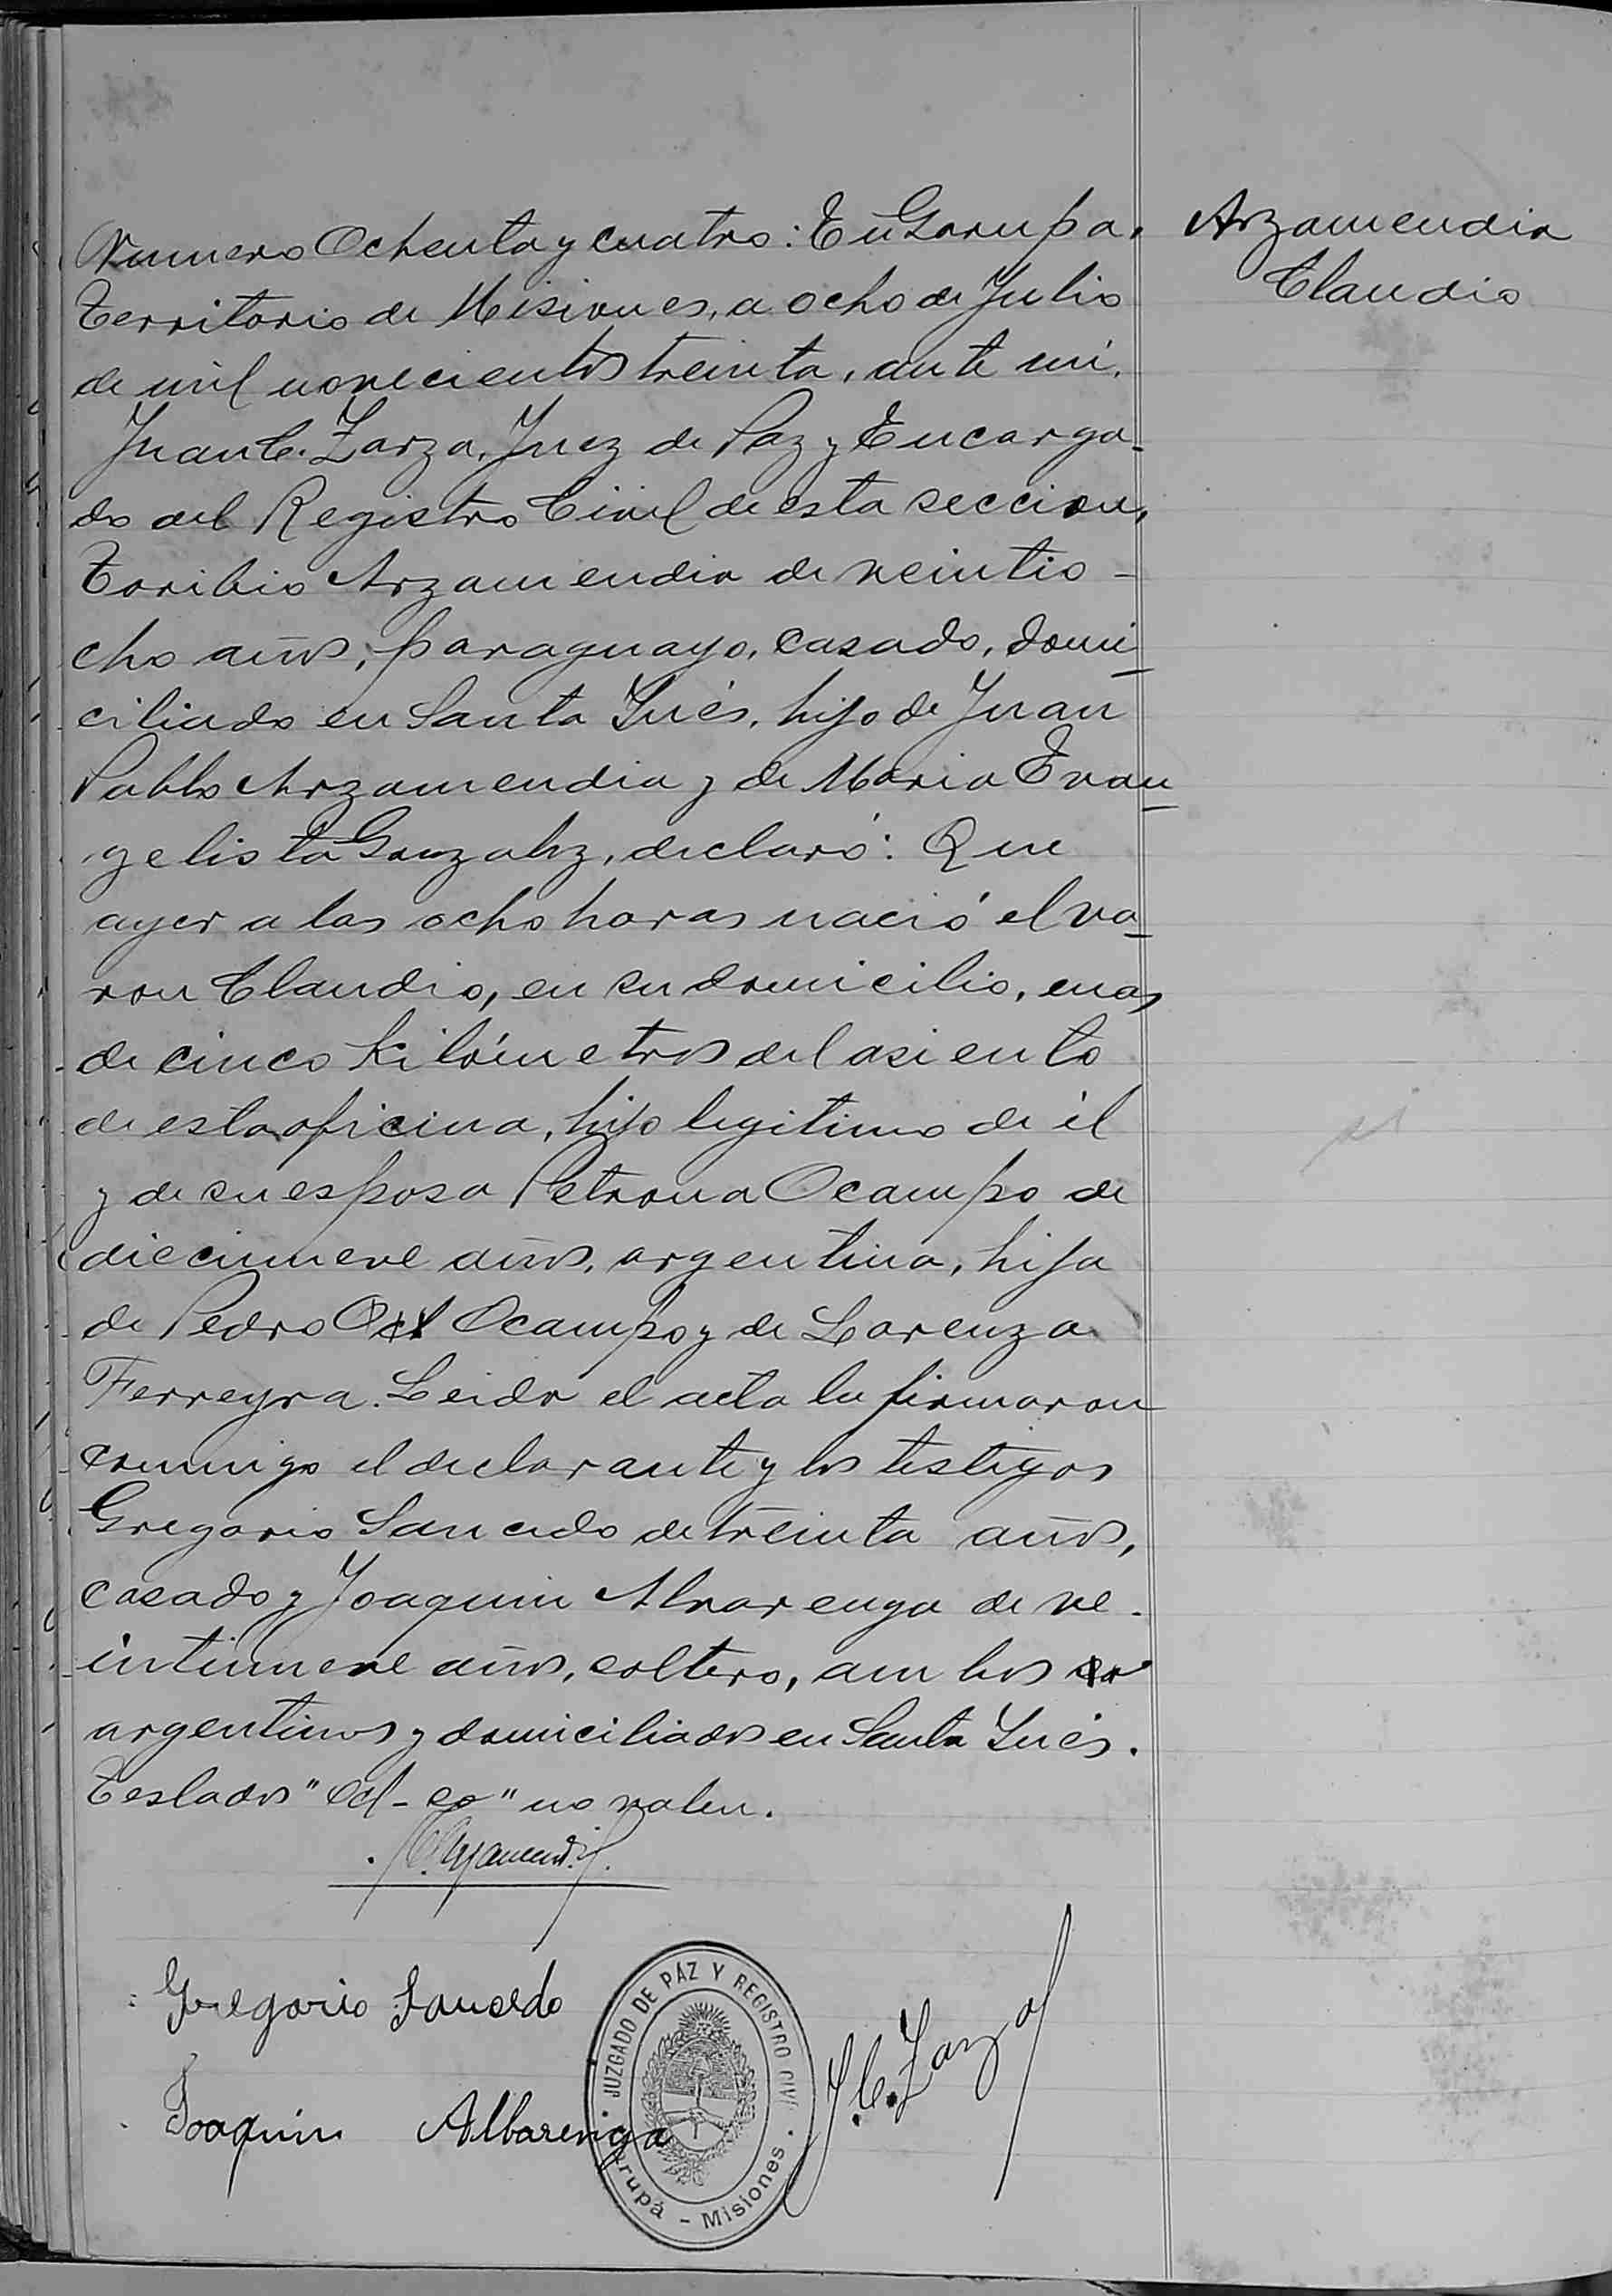 Arzamendia
Claudio
Numero Ochenta y cuatro: En Garupa,
Territorio de Misiones, a ocho de Julio
de mil novecientos treinta, ante mi,
Juan C. Zarza, Juez de Paz y Encarga-
do del Registro Civil de esta seccion,
Toribio Arzamendia de veintio-
cho años, paraguayo, casado, domi-
ciliado en Santa Inés, hijo de Juan
Pablo Arzamendia y de Maria Evan-
gelista Gonzalez, declaró: Que
ayer a las ocho horas nació el va-
ron Claudio, en su domicilio, mas
de cinco kilómetros del asiento
de esta oficina, hijo legitimo de él
y de su esposa Petrona Ocampo de
diecinueve años, argentina, hija
de Pedro Ocl Ocampo y de Lorenza
Ferreyra. Leida el acta la firmaron
conmigo el declarante y los testigos
Gregorio Saucedo de treinta años,
casado y Joaquin Alvarenga de ve-
intinueve años, soltero, ambos
argentinos y domiciliados en Santa Inés.
Teslados "Ocl - ca" no valen.
Gregorio Saucedo
Joaquin Albarenga
J.C. Zarza
JUZGADO DE PAZ Y REGISTRO CIVI
rupá - Misiones